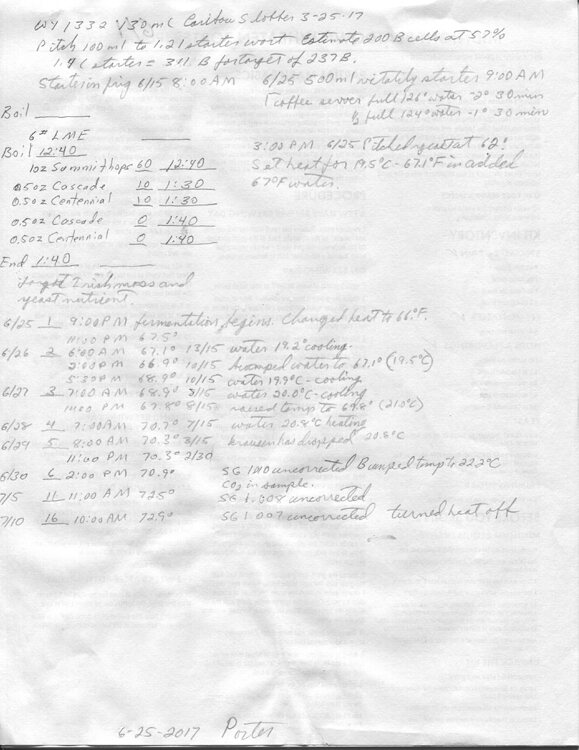 WY 1332 √30 ml Caribou Slobber 3-25-17
Pitch 100 ml to 1.2 l starter wort Estimate 200 B cells at 57%
1.4 l starter = 311 B for target of 237 B.
Starter in frig 6/15 8:00 AM 6/25 500 ml vitality starter 9:00 AM
1 coffee server full 126° water -2° 30 min
full 124° water -1° 30 min
Boil
6# LME
Boil 12:40
3:00 PM 6/25 Pitched yeast at 62°
1oz Summit hops 60 12:40
Set heat for 19.5°C - 67.1°F in added
67°F water.
0.5oz Cascade 10 1:30
0.5oz Centennial 10 1:30
0.5oz Cascade 0 1:40
0.5oz Centennial 0 1:40
End 1:40
forgot Irish moss and
yeast nutrient.
6/25 1 9:00 PM fermentation begins. Changed heat to 66°F.
11:00 PM 67.5°
6/26 2 6:00 AM 67.1° 13/15 water 19.2° cooling.
2:00 PM 66.9° 10/15 bumped water to 67.1° (19.5°C)
5:30 PM 68.9° 10/15 water 19.9°C - cooling
6/27 3 7:00 AM 68.9° 3/15 water 20.0°C - cooling
11:00 PM 67.8° 8/15 raised temp to 69.8° (21.0°C)
6/28 4 7:00 AM 70.7° 7/15 water 20.8°C heating
6/29 5 8:00 AM 70.3° 3/15 krausen has dropped 20.8°C
11:00 PM 70.3° 2/30
6/30 6 2:00 PM 70.9° SG 1.010 uncorrected Bumped temp to 22.2°C
CO2 in sample.
7/5 11 11:00 AM 72.5° SG 1.008 uncorrected
7/10 16 10:00 AM 72.9° SG 1.007 uncorrected turned heat off
6-25-2017 Porter